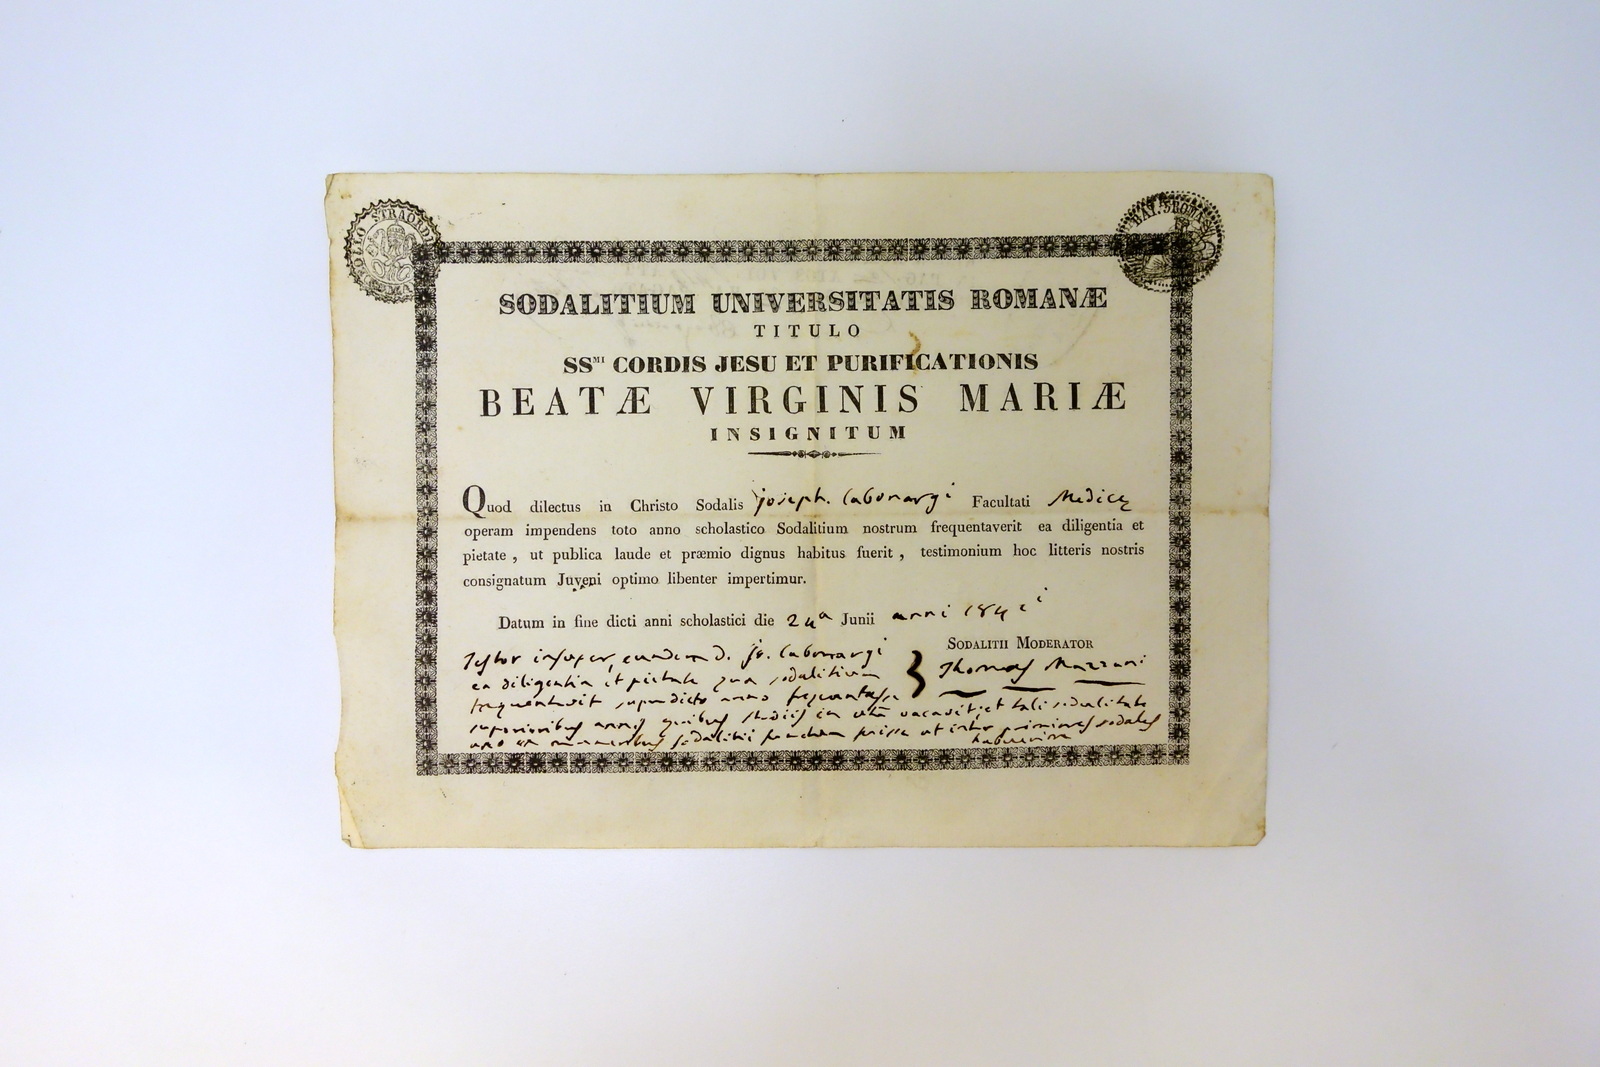 BOLLO STRAORDI
ROMA
BAI. 5 ROMA
SODALITIUM UNIVERSITATIS ROMANÆ
TITULO
SSMI CORDIS JESU ET PURIFICATIONIS
BEATÆ VIRGINIS MARIÆ
INSIGNITUM
Quod dilectus in Christo Sodalis Joseph. Cabonargi Facultati Medicæ
operam impendens toto anno scholastico Sodalitium nostrum frequentaverit ea diligentia et
pietate , ut publica laude et præmio dignus habitus fuerit , testimonium hoc litteris nostris
consignatum Juveni optimo libenter impertimur.
Datum in fine dicti anni scholastici die 24a Junii anni 184
SODALITII MODERATOR
Thomas Mazzani
Testor insuper, eundem D. Jo. Cabonargi
ea diligentia et pietate qua sodalitium
frequentavit supradicto anno frequentasse
superioribus annis quibus studiis in vacavit, et tali sodalitate
muneribus sodalitii ut inter primores sodales
habuerim